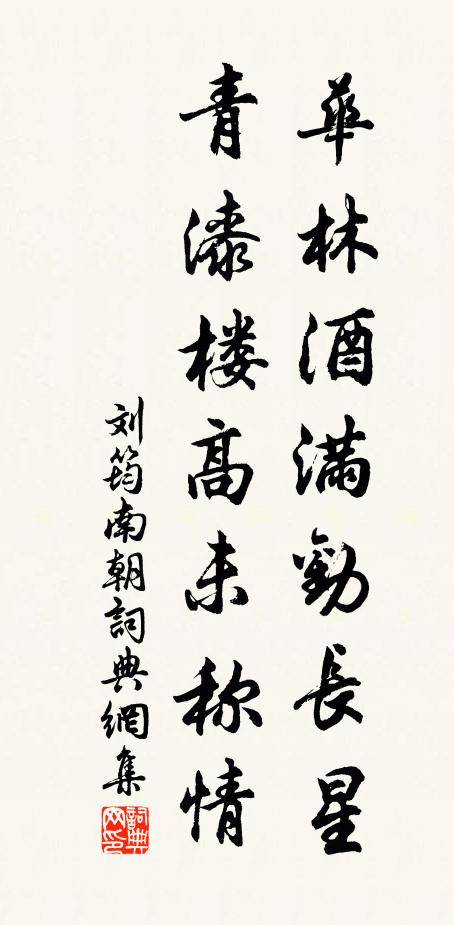 華林酒滿勸長星
青漆楼高未称情
刘筠南朝詞典網集
詞典网印